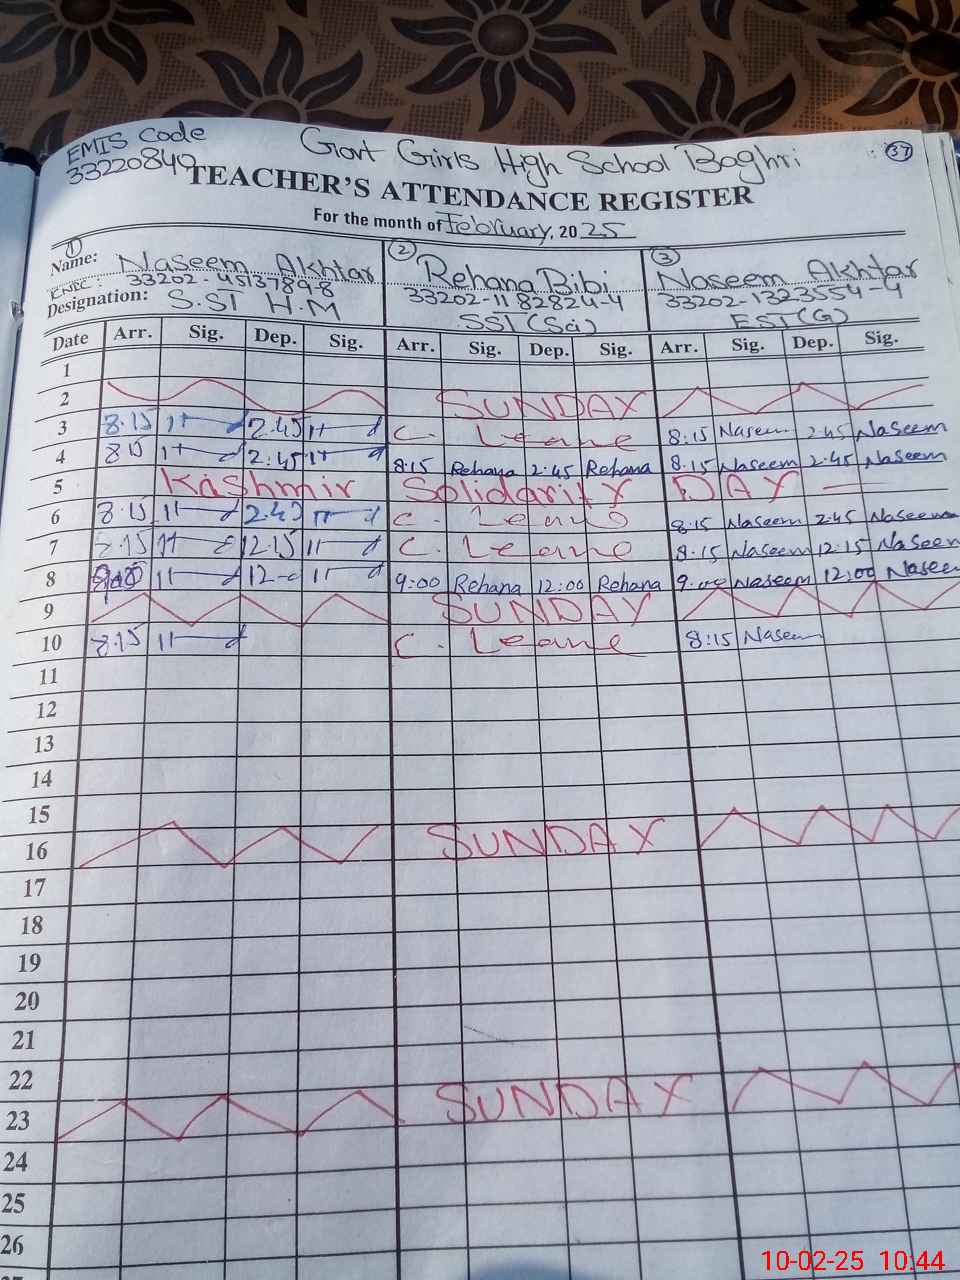 EMIS Code
33220849
Govt Girls High School Baghri
37
TEACHER'S ATTENDANCE REGISTER
For the month of February, 2025
1 2 3
Name: Naseem Akhtar Rehana Bibi Naseem Akhtar
CNIC: 33202-4513789-8 33202-1182824-4 33202-1323554-4
Designation: S.ST H.M SST (Sci) EST (G)
Date Arr. Sig. Dep. Sig. Arr. Sig. Dep. Sig. Arr. Sig. Dep. Sig.
1
2 SUNDAY
3 8.15 2.45 C. Leave 8:15 Naseem 2:45 Naseem
4 8.15 2:45 8:15 Rehana 2:45 Rehana 8:15 Naseem 2:45 Naseem
5 Kashmir Solidarity DAY
6 8.15 2.45 C. Leave 8:15 Naseem 2:45 Naseem
7 8.15 12.15 C. Leave 8:15 Naseem 12:15 Naseem
8 12- 9:00 Rehana 12:00 Rehana 9:00 Naseem 12:00 Naseem
9 SUNDAY
10 8.15 C. Leave 8:15 Naseem
11
12
13
14
15
16 SUNDAY
17
18
19
20
21
22
23 SUNDAY
24
25
26
10-02-25 10:44